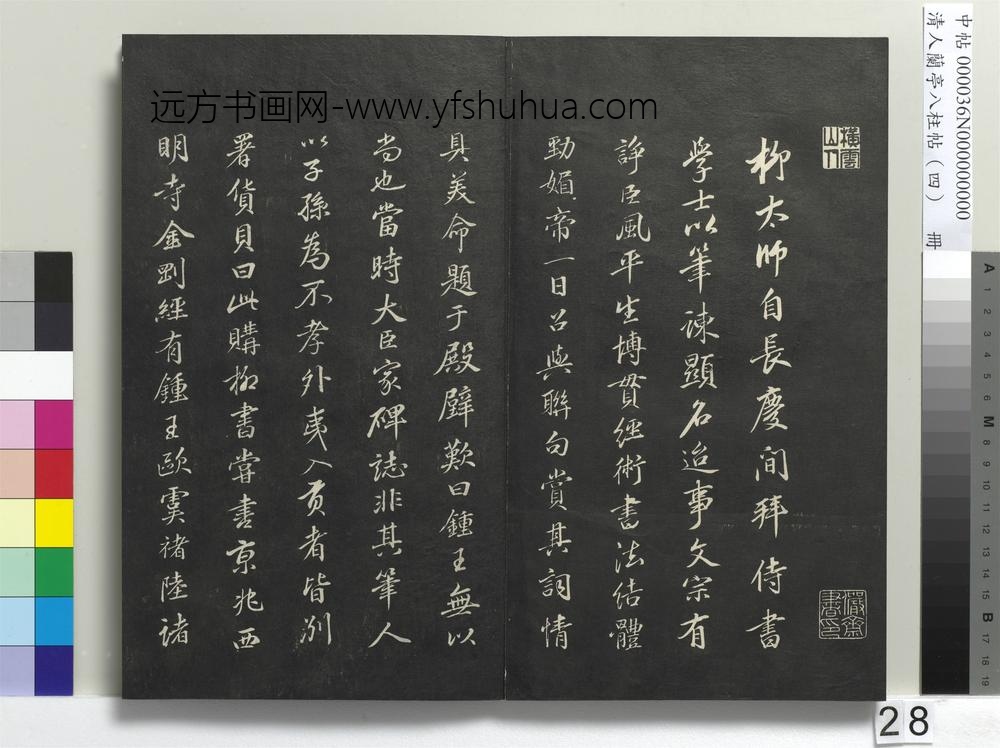 中帖 000036N000000000
清人蘭亭八柱帖（四） 冊
远方书画网-www.yfshuhua.com
橫雲山人
柳太師自長慶間拜侍書
學士以筆諫顯名迨事文宗有
諍臣風平生博貫經術書法結體
勁媚帝一日召與聯句賞其詞情
具美命題于殿壁歎曰鍾王無以
尚也當時大臣家碑誌非其筆人
以子孫為不孝外夷入貢者皆別
署貨貝曰此購柳書嘗書京兆西
明寺金剛經有鍾王歐虞褚陸諸
儼齋書印
A
1
2
3
4
5
6
M
8
9
10
11
12
13
14
15
B
17
18
19
28